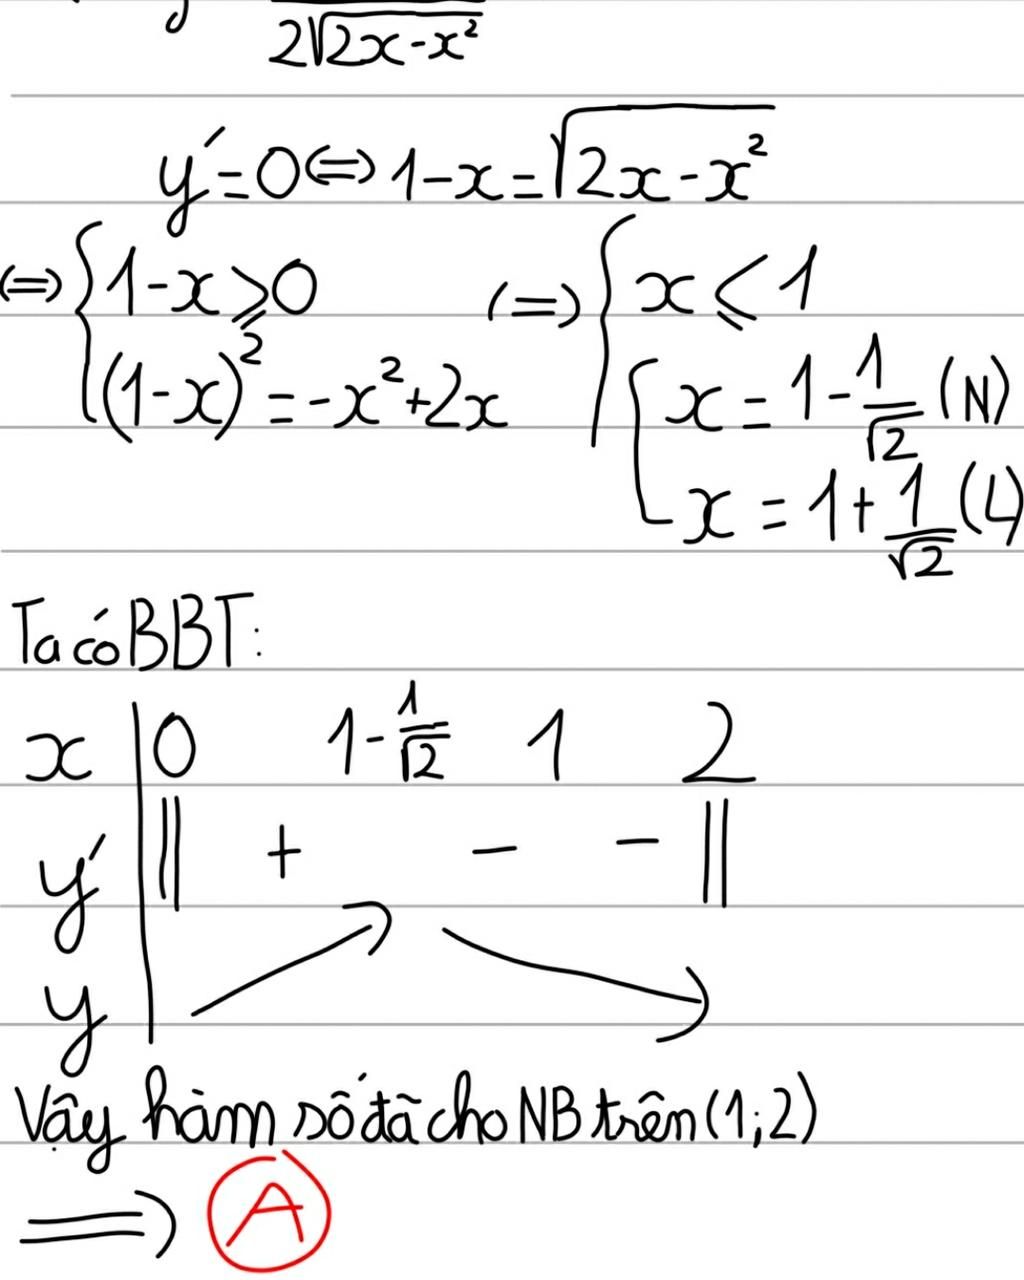 2√(2x-x²)
y'=0⇔1-x=√(2x-x²)
⇔{1-x⩾0 ⇔{x⩽1
(1-x)²=-x²+2x [x=1-1/√2 (N)
x=1+1/√2 (L)
Ta có BBT:
x | 0 1-1/√2 1 2
y' | || + - - ||
y
Vậy hàm số đã cho NB trên (1;2)
⟹ A